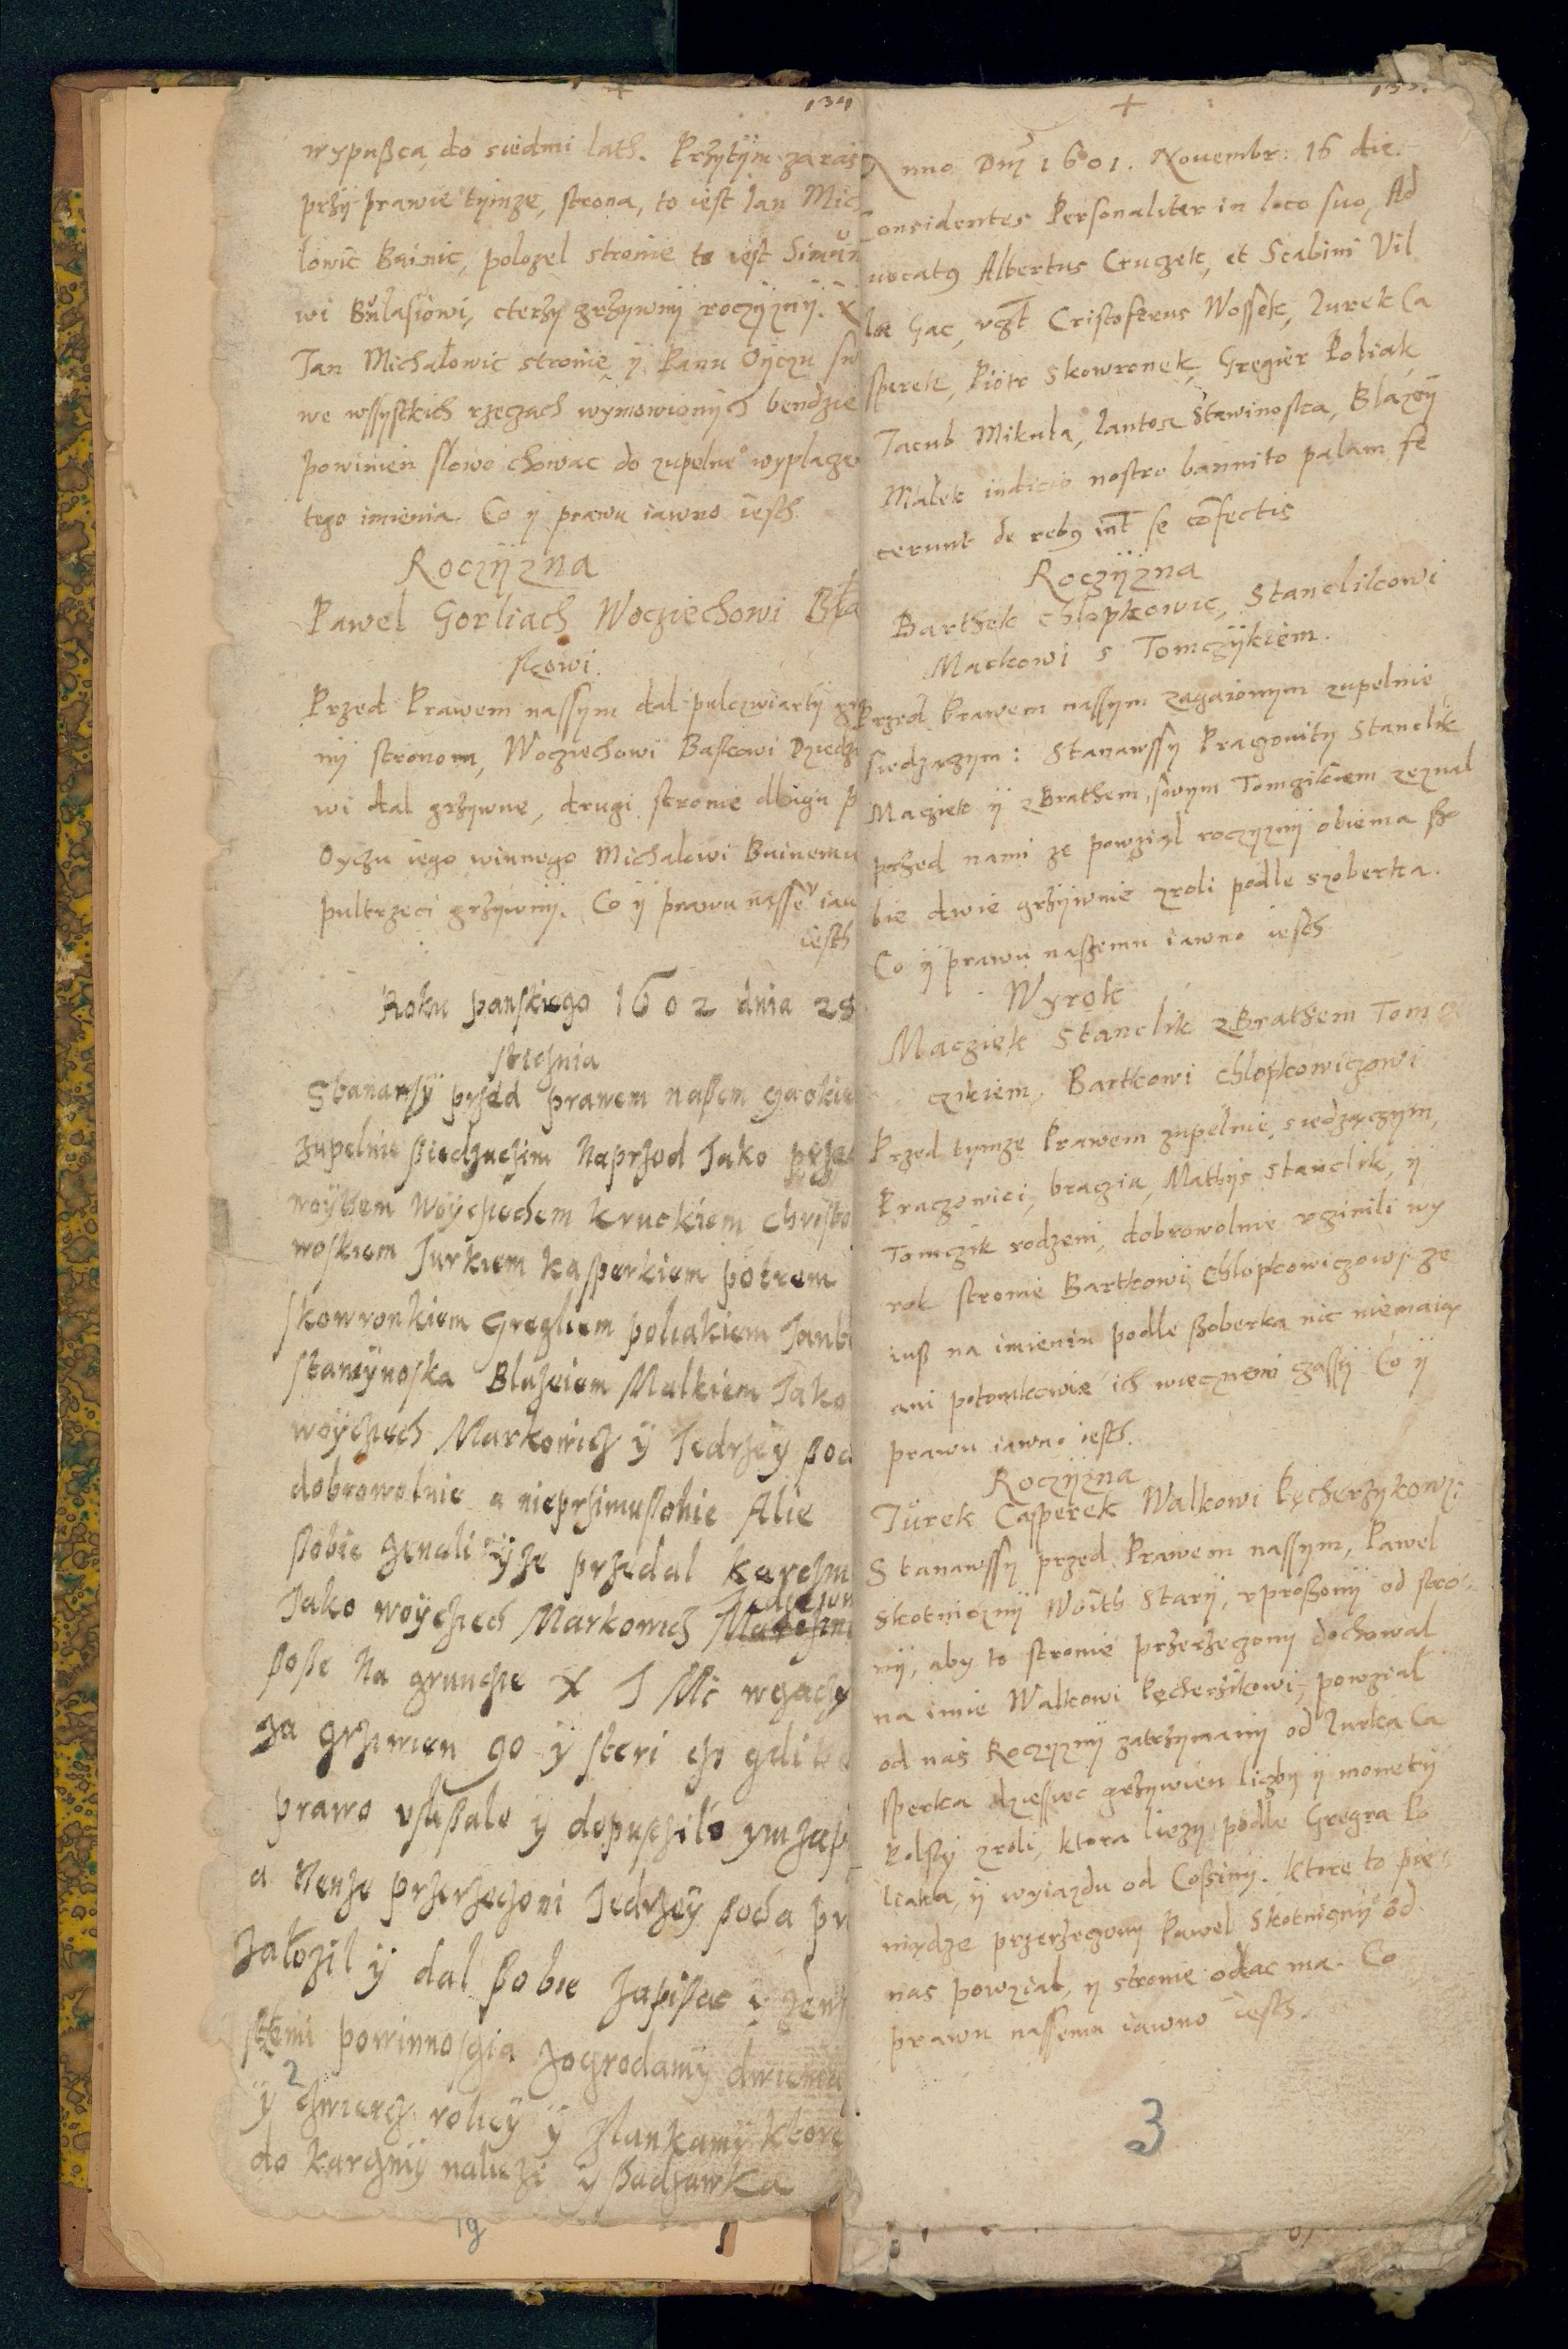 134
wypußca do siedmi lath. Przytÿm zaras
przÿ prawie tÿmze, strona, to iest Jan Mic
lowic Bainic, polozel stronie to iest Simŭn
wi Bŭlasiowi, cterzy grzÿwnÿ roczÿznÿ.
Jan Michałowic stronie ÿ Panu Oÿczu sw
we wssystkich rzeczach wymowionÿch bendzie
powinien slowo chowac do zupelne° wyplacze
tego imienia. Co ÿ prawu iawno iesth.
Roczÿzna
Pawel Gorliach Wocziechowi Bła
skowi.
Przed Prawem nassym dal pulczwiartÿ grz
nÿ stronom, Wocziechowi Baskowi Dziedzi
wi dal grzÿwne, drugi stronie dlugu p
Oyczu iego winnego Michałowi Bainemu
pultrzeci grzÿwnÿ. Co ÿ prawu nasse° iaw
iesth
Roku panskiego 1602 dnia 28
sticznia
Stanawsÿ przed prawem nasem gaokie
zupelnie siedzuczim Naprzod Jako przed
woÿtem Woÿciechem kruckiem Christo
woskiem Jurkiem kasperkiem potrem
skowronkiem Gregliem poliakiem Janto
stawÿnoska Blazeiem Malkiem Jako
woÿciech Markowicz ÿ Jedrzeÿ sod
dobrowolnie a nieprzimusonie Alie
sobie zenali ÿze przedal karczm
Jako woÿciech Markowicz Jedrzeiow
sose Na grunczie X J Mc wgaczÿ
za grziwien 90 ÿ steri
prawo usłusalo ÿ dopusczilo
a Tenze przerzeczoni Jedrzeÿ soda pr
załozil ÿ dal sobie zapisac
stemi powinnosgia zogrodamÿ dwiema
ÿ 2 czwiercz roliÿ ÿ zlankamÿ ktore
do kargmÿ naliezi ÿ sadzawka
19
Anno Dnÿ 1601. Novembr: 16 die.
Considentes Personaliter in loco suo, Ad
uocatg Albertus Cruczek, et Scabini Vil
læ Gac, vgt Cristoferus Wossek, Jurek Ca
sperek, Piotr Skowronek, Gregier Poliak
Jacub Mikuła, Jantos Stawinoska, Błazeÿ
Małek iudicio nostro bannito palam fe
cerunt de rebg int se cōfectis
Roczÿzna
Barthek Chlopkowic, Stanclikowi
Mackowi s Tomczÿkiem.
Przed Prawem nassym zagaionym zupelnie
siedzaczym: Stanawssy Pragowity Stanclik
Maciek ÿ z Brathem swym Tomczikiem zeznal
przed nami ze powziął roczyznÿ obiema so
bie dwie grzÿwnie zroli podle szoberka.
Co ÿ prawu naszemu iawno iesth
Wyrok
Macziek Stanclik z Brathem Tom
czikiem, Bartkowi Chlopkowiczowi
Przed tymze Prawem zupelnie siedzączym,
Praczowici, braczia, Mathÿs Stanclik, ÿ
Tomczik rodzeni, dobrowolnie vginili wy
rok stronie Bartkowi Chlopkowiczowi ze
iuß na imieniu podle ßoberka nic niemaią
ani potomkowie ich wiecznemi czassÿ Co ÿ
prawu iawno iesth.
Roczÿzna
Jŭrek Casperek Walkowi Kęcherzykowi:
Stanawssy przed Prawem nassym, Pawel
Skotnicznÿ Woith Starÿ, vproßonÿ od stro
nÿ, aby to stronie przerzeczonÿ dochowal
na imie Walkowi Kęcherzikowi, powział
od nas Roczyznÿ zatrzymanÿ od Jurka Ca
sperka dziessec grzÿwien liczby ÿ monetÿ
Polskÿ zroli, ktora liezy podle Gregra Po
liaka, ÿ wyiazdu od Coßinÿ. Ktore to pie
niądze przerzeczonÿ Pawel Skotnicznÿ od
nas powzial, ÿ stronie oddac ma. Co
prawu nassemu iawno iesth.
3